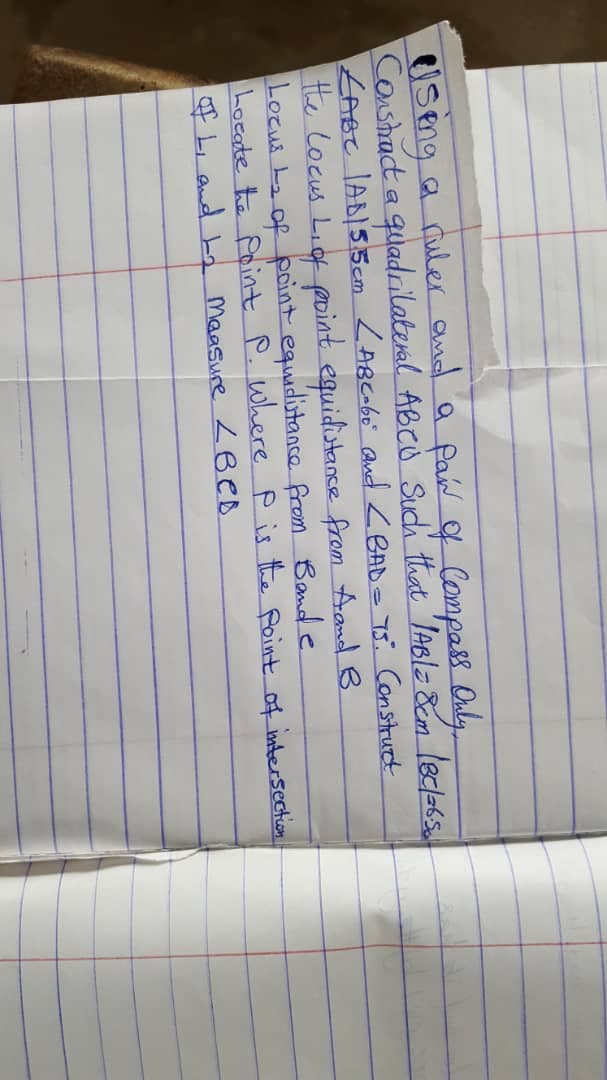 Using a ruler and a pair of compass only,
Construct a quadrilateral ABCD Such that |AB|=8cm |BC|=6.5c
∠ABC |AD|5.5cm ∠ABC=60° and ∠BAD=75°. Construct
the locus L1 of point equidistance from A and B
Locus L2 of point equidistance from B and C
Locate the point P. where P is the point of intersection
of L1 and L2 Measure ∠BCD